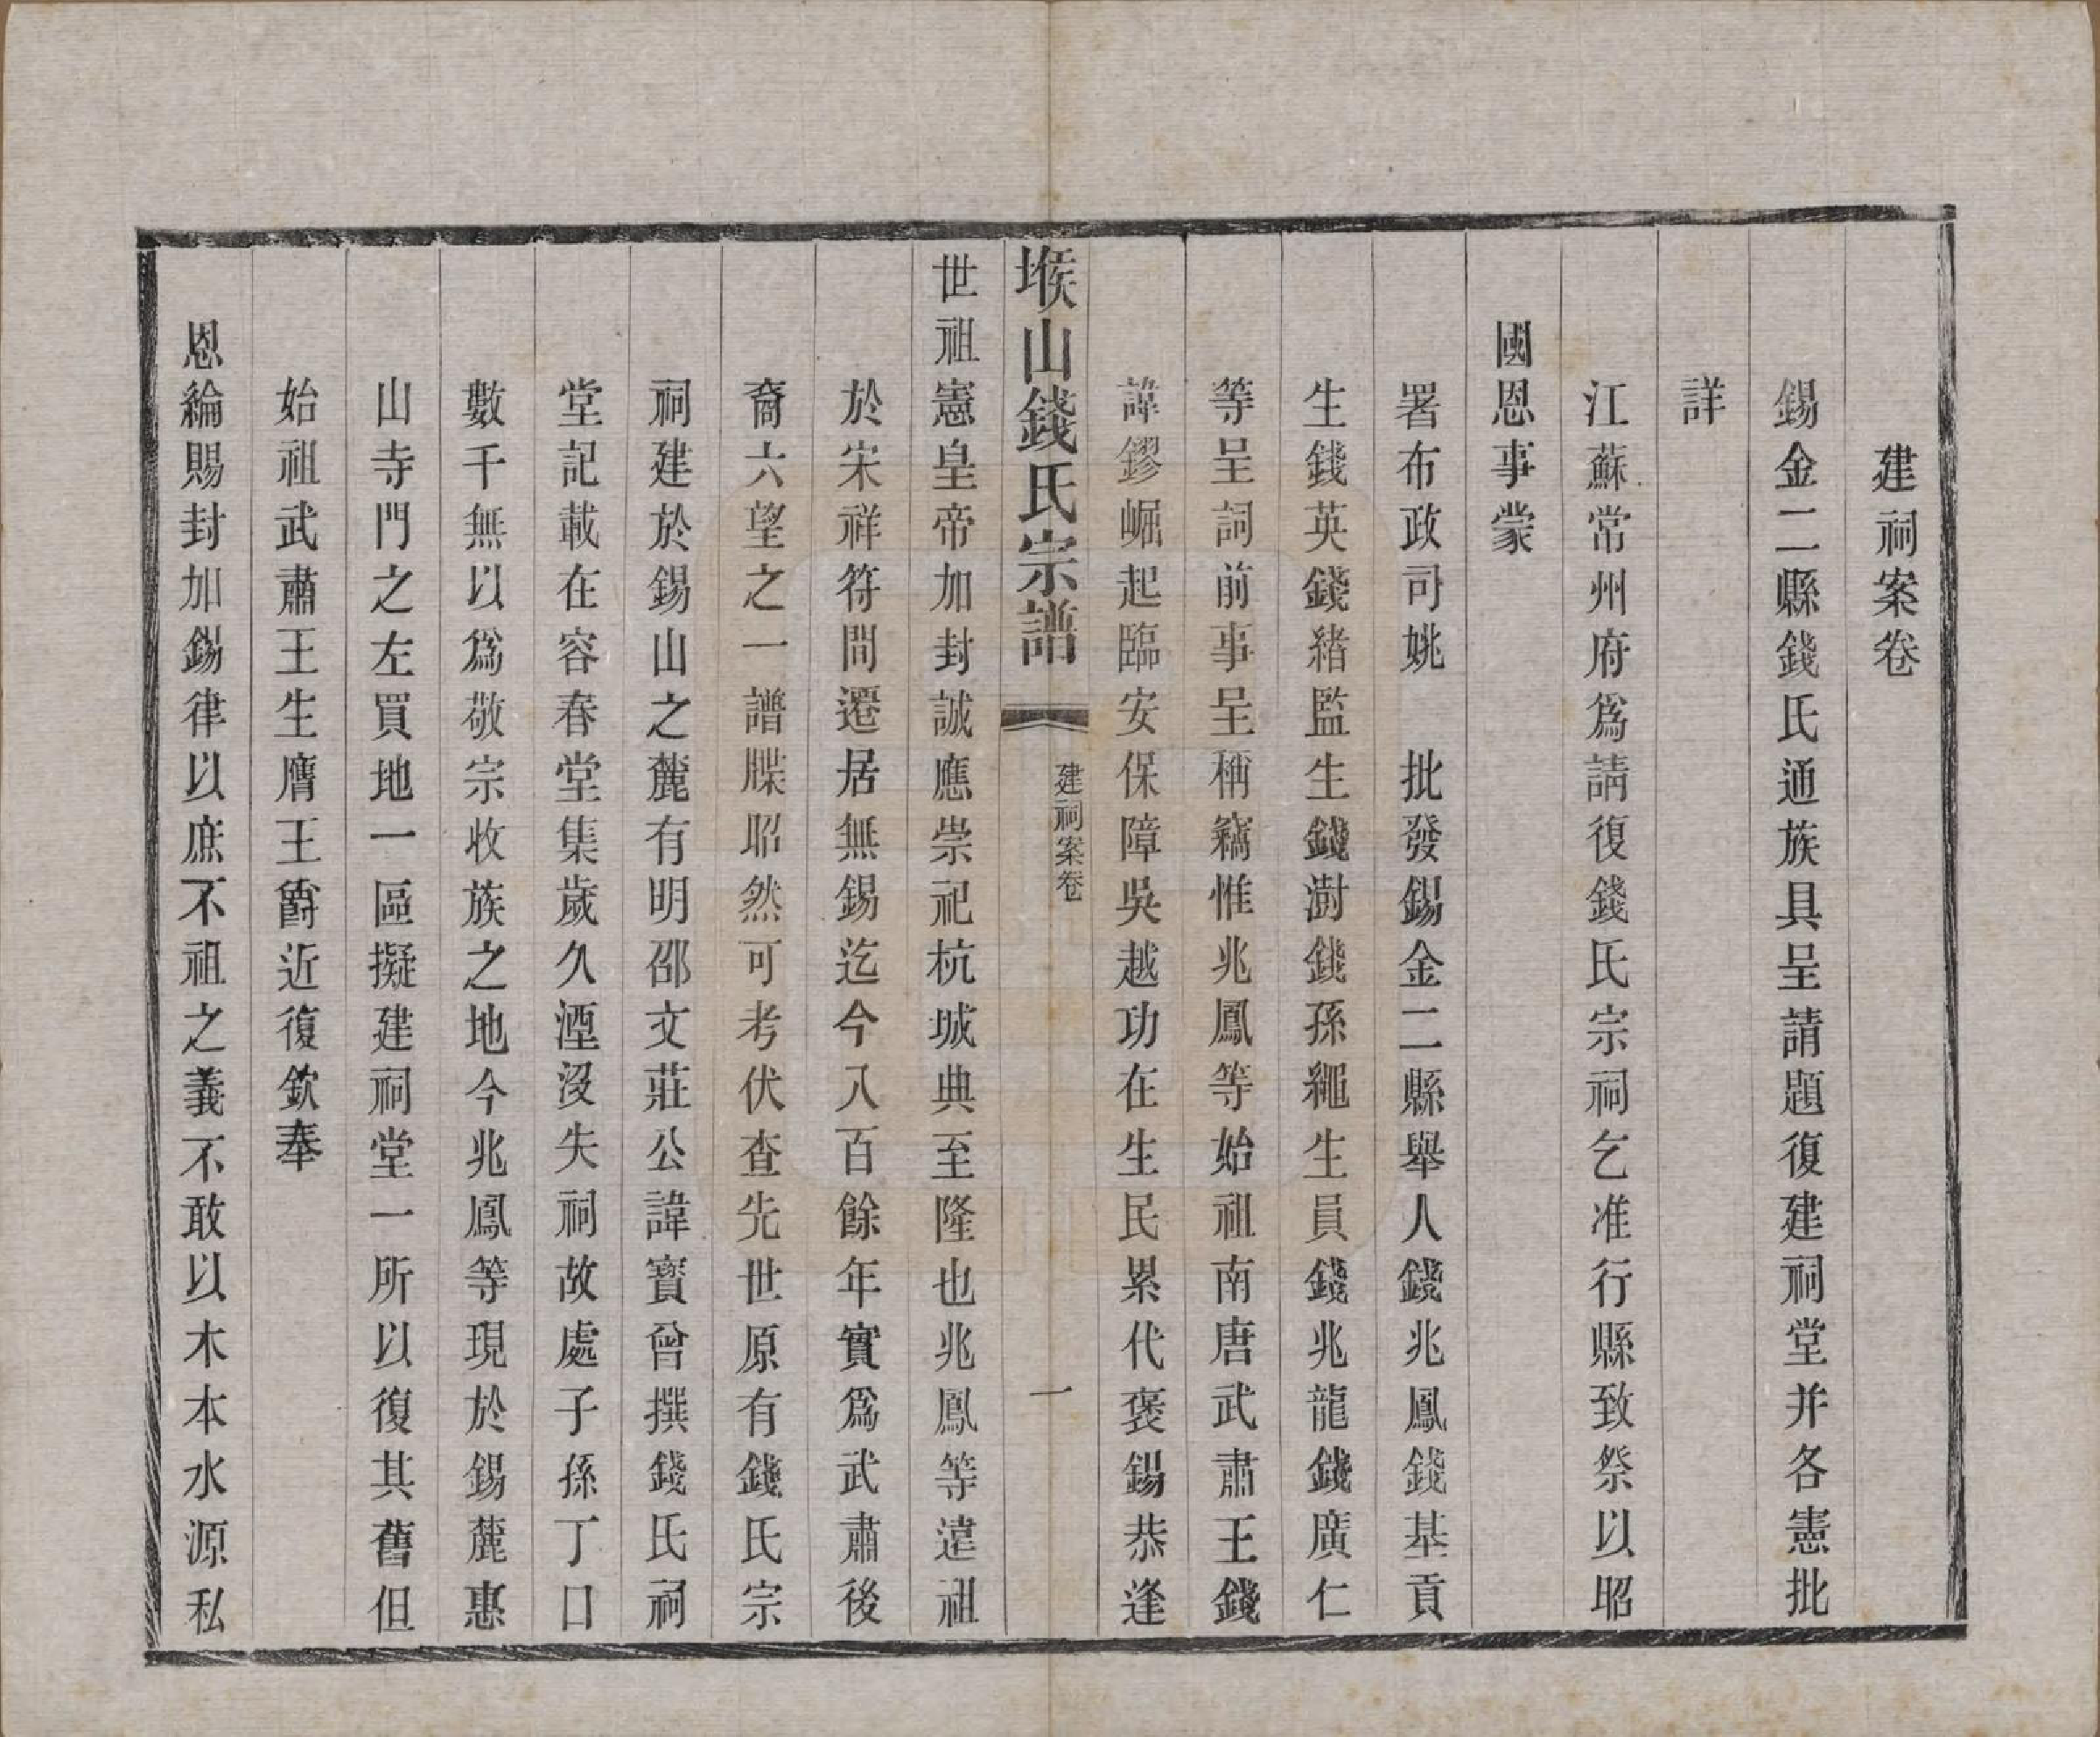 建祠案卷
錫金二縣錢氏通族具呈請題復建祠堂并各憲批
詳
江蘇常州府爲請復錢氏宗祠乞准行縣致祭以昭
國恩事蒙
署布政司姚　批發錫金二縣舉人錢兆鳳錢基貢
生錢英錢緒監生錢澍錢孫繩生員錢兆龍錢廣仁
等呈詞前事呈稱竊惟兆鳳等始祖南唐武肅王錢
諱鏐崛起臨安保障吳越功在生民累代褒錫恭逢
堠山錢氏宗譜　建祠案卷　一
世祖憲皇帝加封誠應崇祀杭城典至隆也兆鳳等遠祖
於宋祥符間遷居無錫迄今八百餘年實爲武肅後
裔六望之一譜牒昭然可考伏查先世原有錢氏宗
祠建於錫山之麓有明邵文莊公諱寶曾撰錢氏祠
堂記載在容春堂集歲久湮沒失祠故處子孫丁口
數千無以爲敬宗收族之地今兆鳳等現於錫麓惠
山寺門之左買地一區擬建祠堂一所以復其舊但
始祖武肅王生膺王爵近復欽奉
恩綸賜封加錫律以庶不祖之義不敢以木本水源私